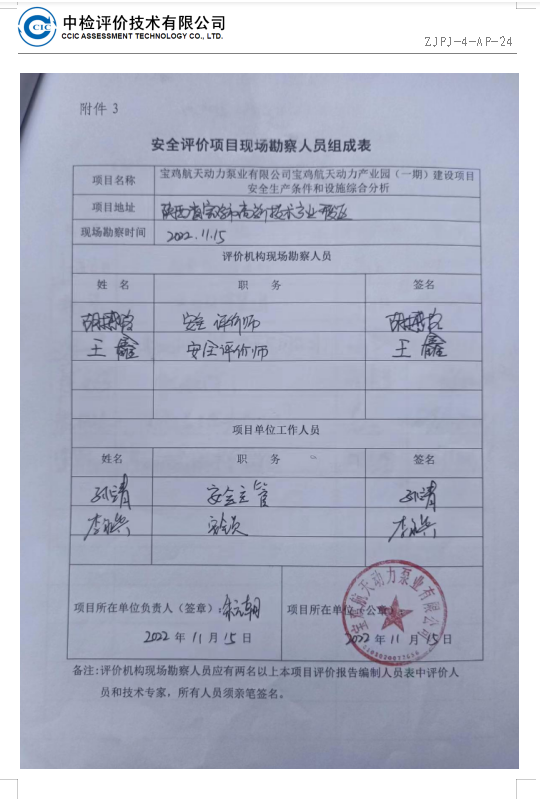 中检评价技术有限公司
CCIC ASSESSMENT TECHNOLOGY CO., LTD.
CCIC
ZJPJ-4-AP-24
附件 3
安全评价项目现场勘察人员组成表
项目名称 宝鸡航天动力泵业有限公司宝鸡航天动力产业园（一期）建设项目
安全生产条件和设施综合分析
项目地址 陕西省宝鸡市高新技术产业开发区
现场勘察时间 2022.11.15
评价机构现场勘察人员
姓 名 职 务 签名
安全评价师
王鑫 安全评价师 王鑫
项目单位工作人员
姓名 职 务 签名
孙靖 安全主管 孙靖
安全员
项目所在单位负责人（签章）：
项目所在单位（公章）
2022 年 11 月 15 日 2022 年 11 月 15 日
宝鸡航天动力泵业有限公司
备注：评价机构现场勘察人员应有两名以上本项目评价报告编制人员表中评价人
员和技术专家，所有人员须亲笔签名。